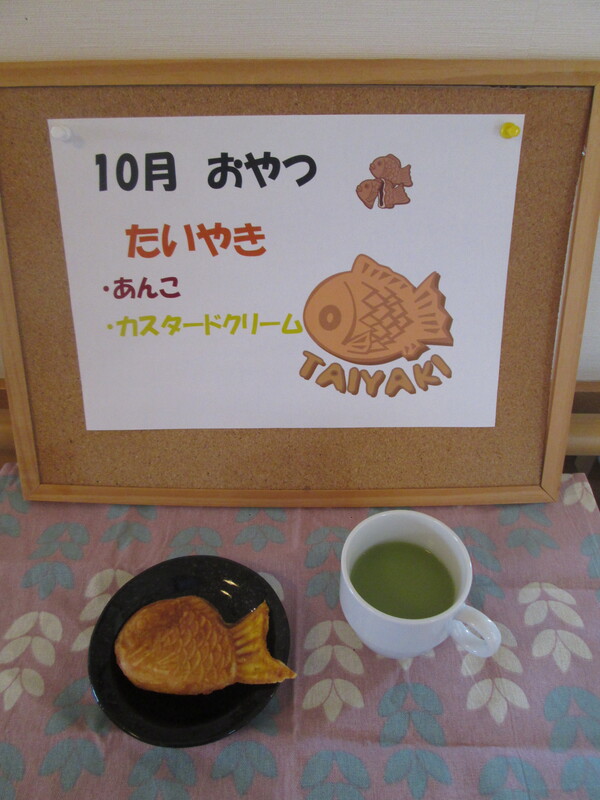 10月 おやつ
たいやき
・あんこ
・カスタードクリーム
TAIYAKI